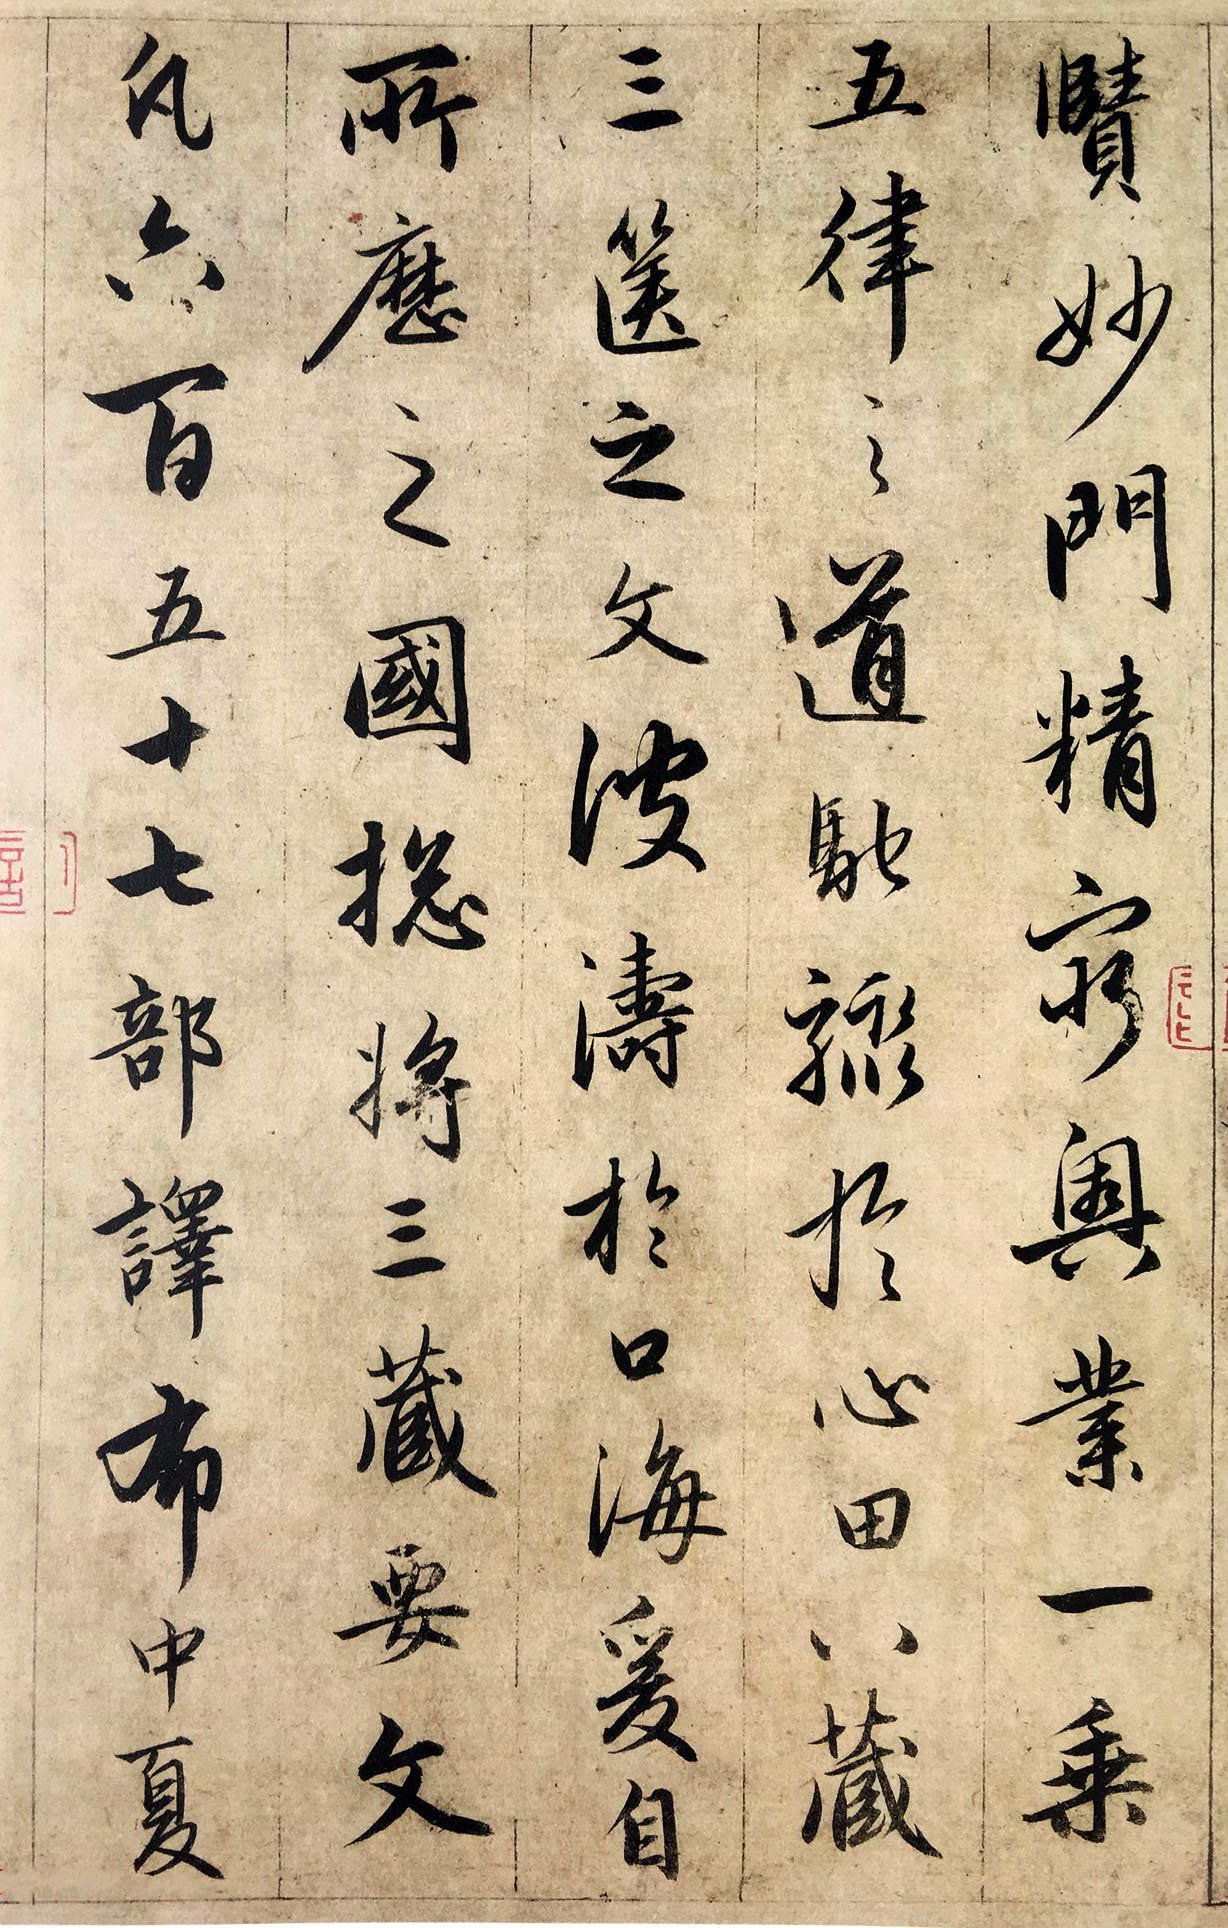 賾妙門精窮奥業一乗
五律之道馳驟於心田八藏
三篋之文波濤於口海爰自
所歷之國捴將三藏要文
凡六百五十七部譯布中夏